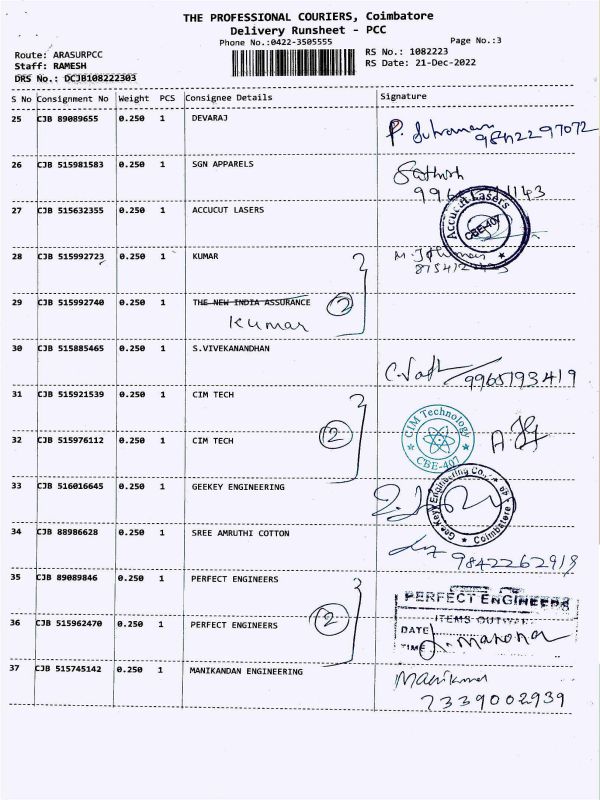 THE PROFESSIONAL COURIERS, Coimbatore
Delivery Runsheet - PCC
Phone No.:0422-3505555
Page No.:3
Route: ARASURPCC
RS No.: 1082223
Staff: RAMESH
RS Date: 21-Dec-2022
DRS No.: DCJB108222303
S No Consignment No Weight PCS Consignee Details Signature
25 CJB 89089655 0.250 1 DEVARAJ
9842297072
26 CJB 515981583 0.250 1 SGN APPARELS
Sathish
27 CJB 515632355 0.250 1 ACCUCUT LASERS
Accucut Lasers
CBE-407
28 CJB 515992723 0.250 1 KUMAR
29 CJB 515992740 0.250 1 THE NEW INDIA ASSURANCE
2
Kumar
30 CJB 515885465 0.250 1 S.VIVEKANANDHAN
9965193419
31 CJB 515921539 0.250 1 CIM TECH
CIM Technology
CBE-407
32 CJB 515976112 0.250 1 CIM TECH
2
33 CJB 516016645 0.250 1 GEEKEY ENGINEERING
Gee Key Engineering
Coimbatore
34 CJB 88986628 0.250 1 SREE AMRUTHI COTTON
9842262918
35 CJB 89089846 0.250 1 PERFECT ENGINEERS
PERFECT ENGINEERS
ITEMS OUTWARD
36 CJB 515962470 0.250 1 PERFECT ENGINEERS
2
DATE
TIME
37 CJB 515745142 0.250 1 MANIKANDAN ENGINEERING
7339002939